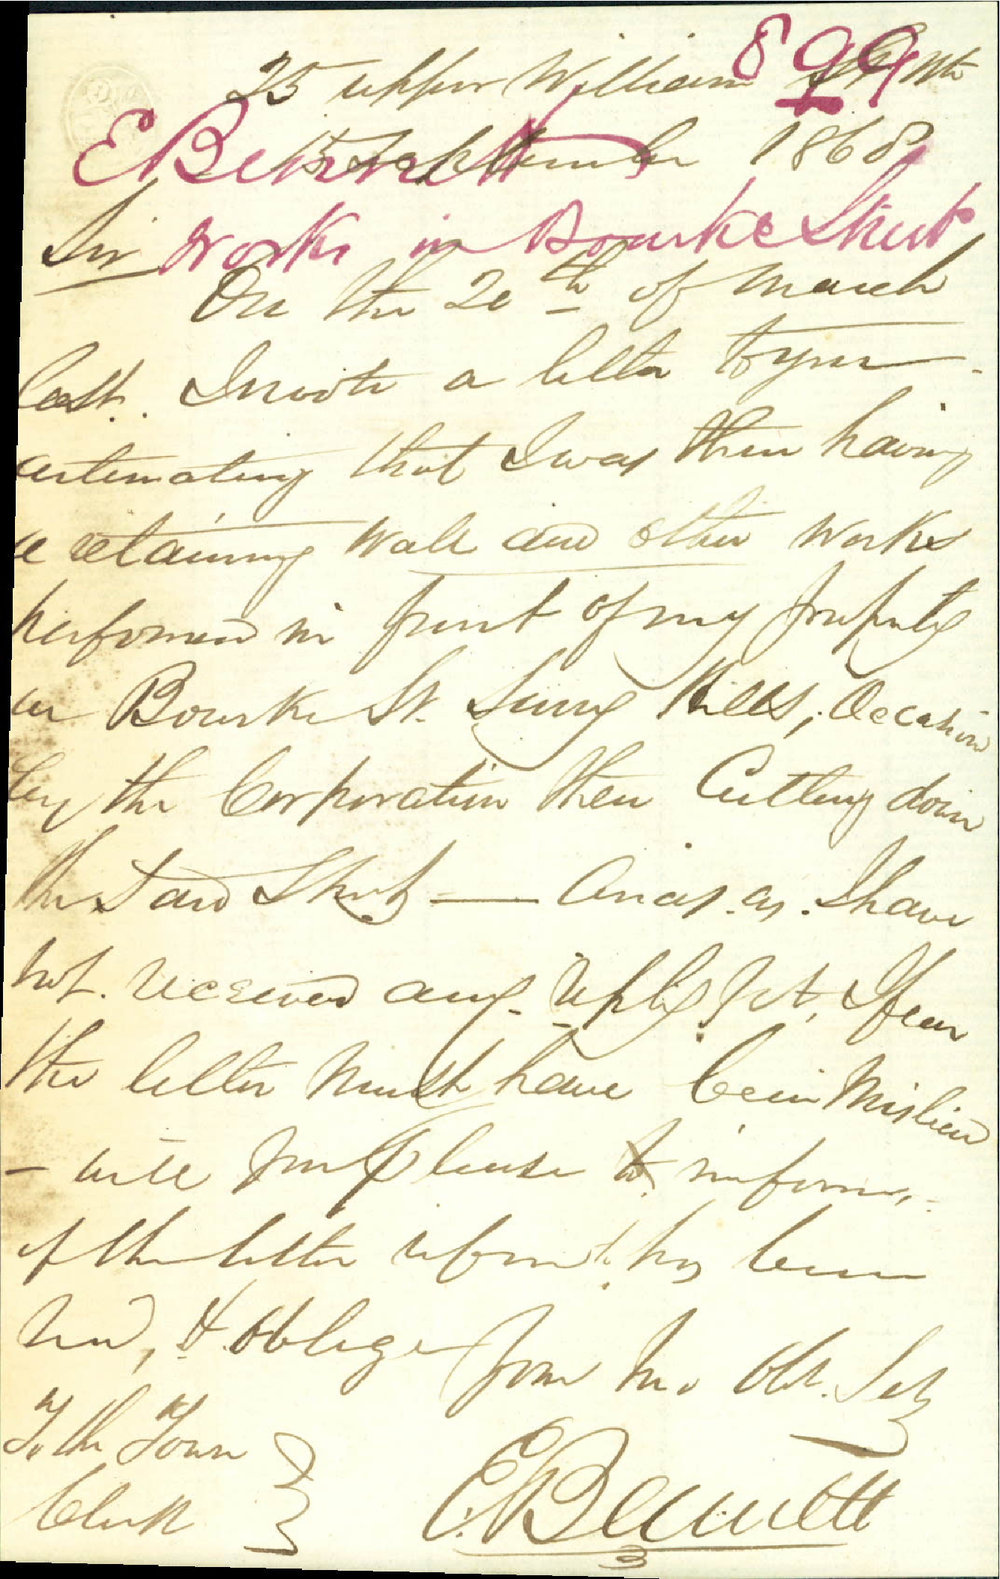 899
25 upper William St Nth
E Bennett
15 September 1868
Works in Bourke Street
Sir
On the 20th of March
last. I wrote a letter to you
intimating that I was then having
a retaining wall and other works
performed in front of my property
in Bourke St. Surry Hills, Occasion
by the Corporation then Cutting down
the said Street — as I have
not received any reply yet, I fear
the letter must have been Mislaid
- will you please to inform,
if the letter referred to has been
recd, & oblige your Mo Obt. Set
To the Town
Clerk
E. Bennett